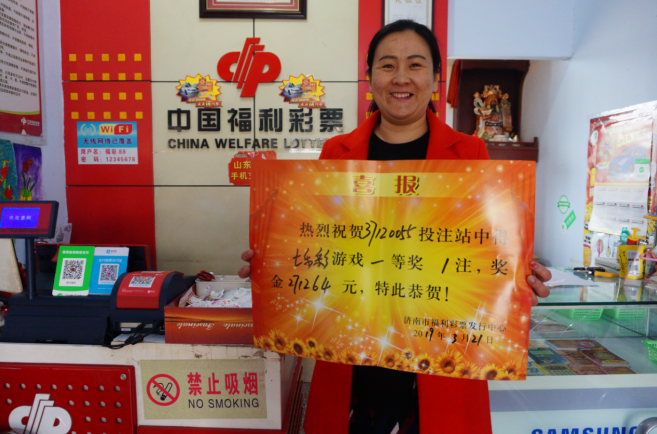 中国福利彩票
CHINA WELFARE LOTTE
山东
手机
WiFi
无线网络已覆盖
用户名：福彩 88
密 码：12345678
喜报
热烈祝贺3712055投注站中得
七乐彩游戏一等奖 1注，奖
金271264元，特此恭贺！
济南市福利彩票发行中心
2019年3月21日
禁止吸烟
NO SMOKING
SAMSUNG